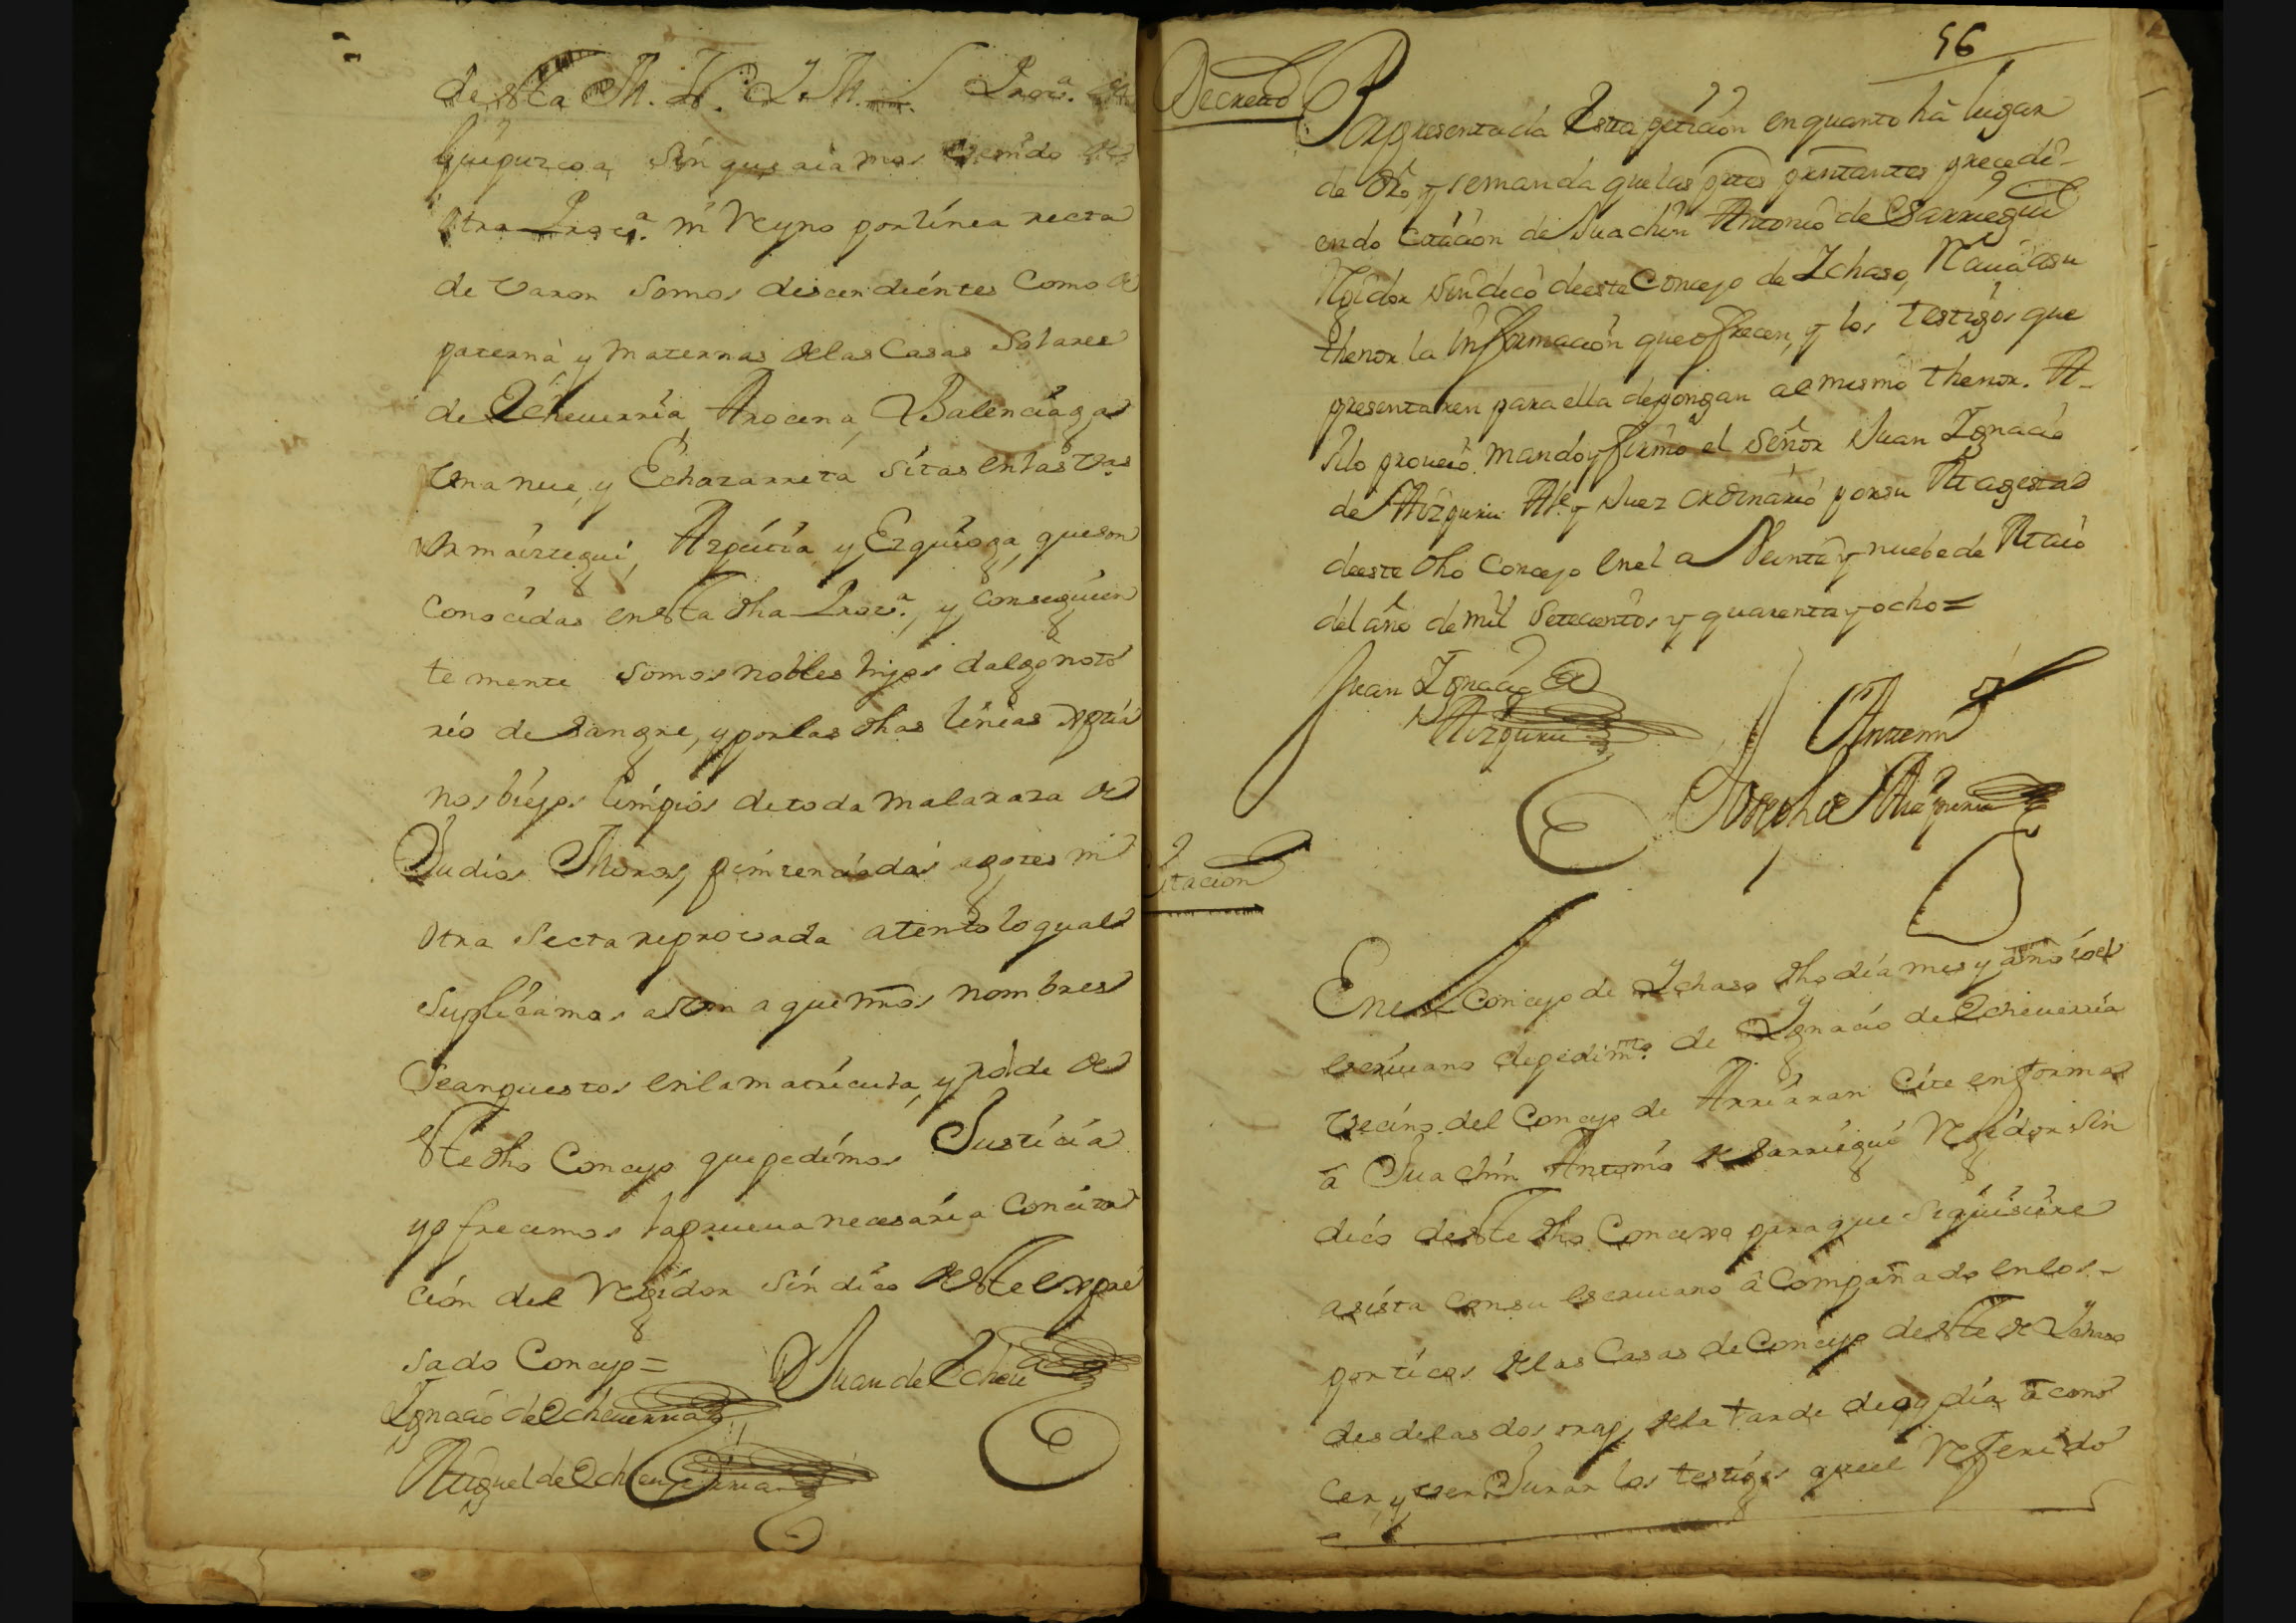 desta M. N. Y M. L Prov.ª de
Guipuzcoa sin que aiamos venido de
otra Prov.ª ni Reyno por línea recta
de varon somos descendientes como de
paterna y maternas de las Casas Solares
de Echeverria, Arocena, Balenciaga
Vrmaiztegui, Azpeitia y Ezquioga, que son
conocidas en sta dha Prov.ª, y consiguien
te mente somos nobles hijos dalgo noto
rio de sangre, y por las dhas lineas xptia
nos biejos limpios de toda mala raza de
Judios Moros, penitenciados agotes ni
otra Secta reprovada atento lo qual
Suplicamos a vm a que nros nombres
Sean puestos en la matricula, y rolde de
ste dho Concejo que pedimos Justicia
y ofrecemos la prueva necesaria con cita
ción del Regidor Sindico de ste expre
sado Concejo =
Juan de Echeva
Ignacio de Echeverria
Miguel de Echeverria
56
Decreto
Por presentada Esta petición en quanto há lugar
de dro, y se manda que las ptes pntantes precedi-
endo Citación de Juachin Antonio de Sarriegui
Regidor Sindico de este Concejo de Ichaso, Reciva a su
thenor la Informacion que ofrecen, y los Testigos que
presentaren para ella depongan al mismo thenor. A-
si lo proveió mando y firmó el Señor Juan Ignacio
de Aizpuru Alc.e y Juez ordinario por su Magestad
de este dho Concejo en el a Veinte y nuebe de Maio
del año de mil Setecientos y quarenta y ocho =
Juan Ignacio de
Aizpuru
Ante mi
Joseph de Aizpuru
Citacion
En el Concejo de Ichaso dho día mes y año io el
escrivano de pedim.to de Ignacio de Echeverria
vecino del Concejo de Arriaran Cite en forma
â Juachin Antonio de Sarriegui Regidor Sin
dico deste dho Concejo para que si quisiere
asista con su escrivano âCompañado en los -
porticos de las Casas de Concejo deste de Ichaso
desde las dos oras de la tarde de oy día â cono
cer, y ver Jurar los testigos que el Referido